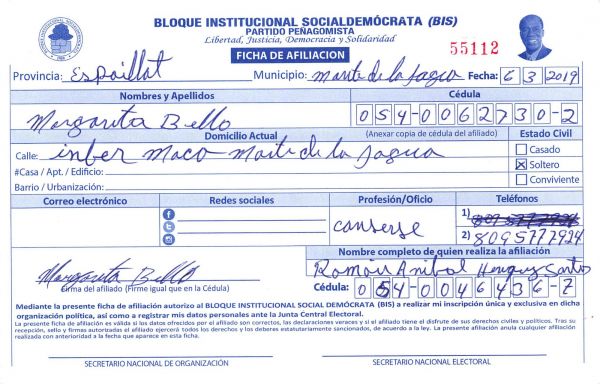 BLOQUE INSTITUCIONAL SOCIALDEMÓCRATA (BIS)
PARTIDO PEÑAGOMISTA
Libertad, Justicia, Democracia y Solidaridad
FICHA DE AFILIACION
55112
Provincia: Espaillat Municipio: Monte de la Jagua Fecha: 6 3 2019
Nombres y Apellidos Cédula
Margarita Bello 054-0062730-2
Domicilio Actual (Anexar copia de cédula del afiliado) Estado Civil
Calle: inber Maco Monte de la Jagua
Casado
#Casa / Apt. / Edificio: Soltero
Barrio / Urbanización: Conviviente
Correo electrónico Redes sociales Profesión/Oficio Teléfonos
1) 809 5777924
2) 8095777924
Nombre completo de quien realiza la afiliación
Ramón Anibal Santos
Margarita Bello
Firma del afiliado (Firme igual que en la Cédula)
Cédula: 054-0046436-7
Mediante la presente ficha de afiliación autorizo al BLOQUE INSTITUCIONAL SOCIAL DEMÓCRATA (BIS) a realizar mi inscripción única y exclusiva en dicha
organización política, así como a registrar mis datos personales ante la Junta Central Electoral.
La presente ficha de afiliación es válida si los datos ofrecidos por el afiliado son correctos, las declaraciones veraces y si el afiliado tiene el disfrute de sus derechos civiles y políticos. Tras su
recepción, sello y firmas autorizadas el afiliado ejercerá todos los derechos y los deberes estatutariamente sancionados, de acuerdo a la ley. La presente afiliación anula cualquier afiliación
realizada con anterioridad a la fecha que aparece en esta ficha.
SECRETARIO NACIONAL DE ORGANIZACIÓN SECRETARIO NACIONAL ELECTORAL